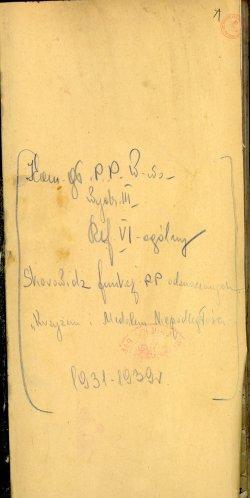 Kom. gł. P.P. W-wa
Wydz. III
Ref VI - ogólny
Skorowidz funkcj. PP odznaczonych
"Krzyżem i Medalem Niepodległości
1931-1939r.